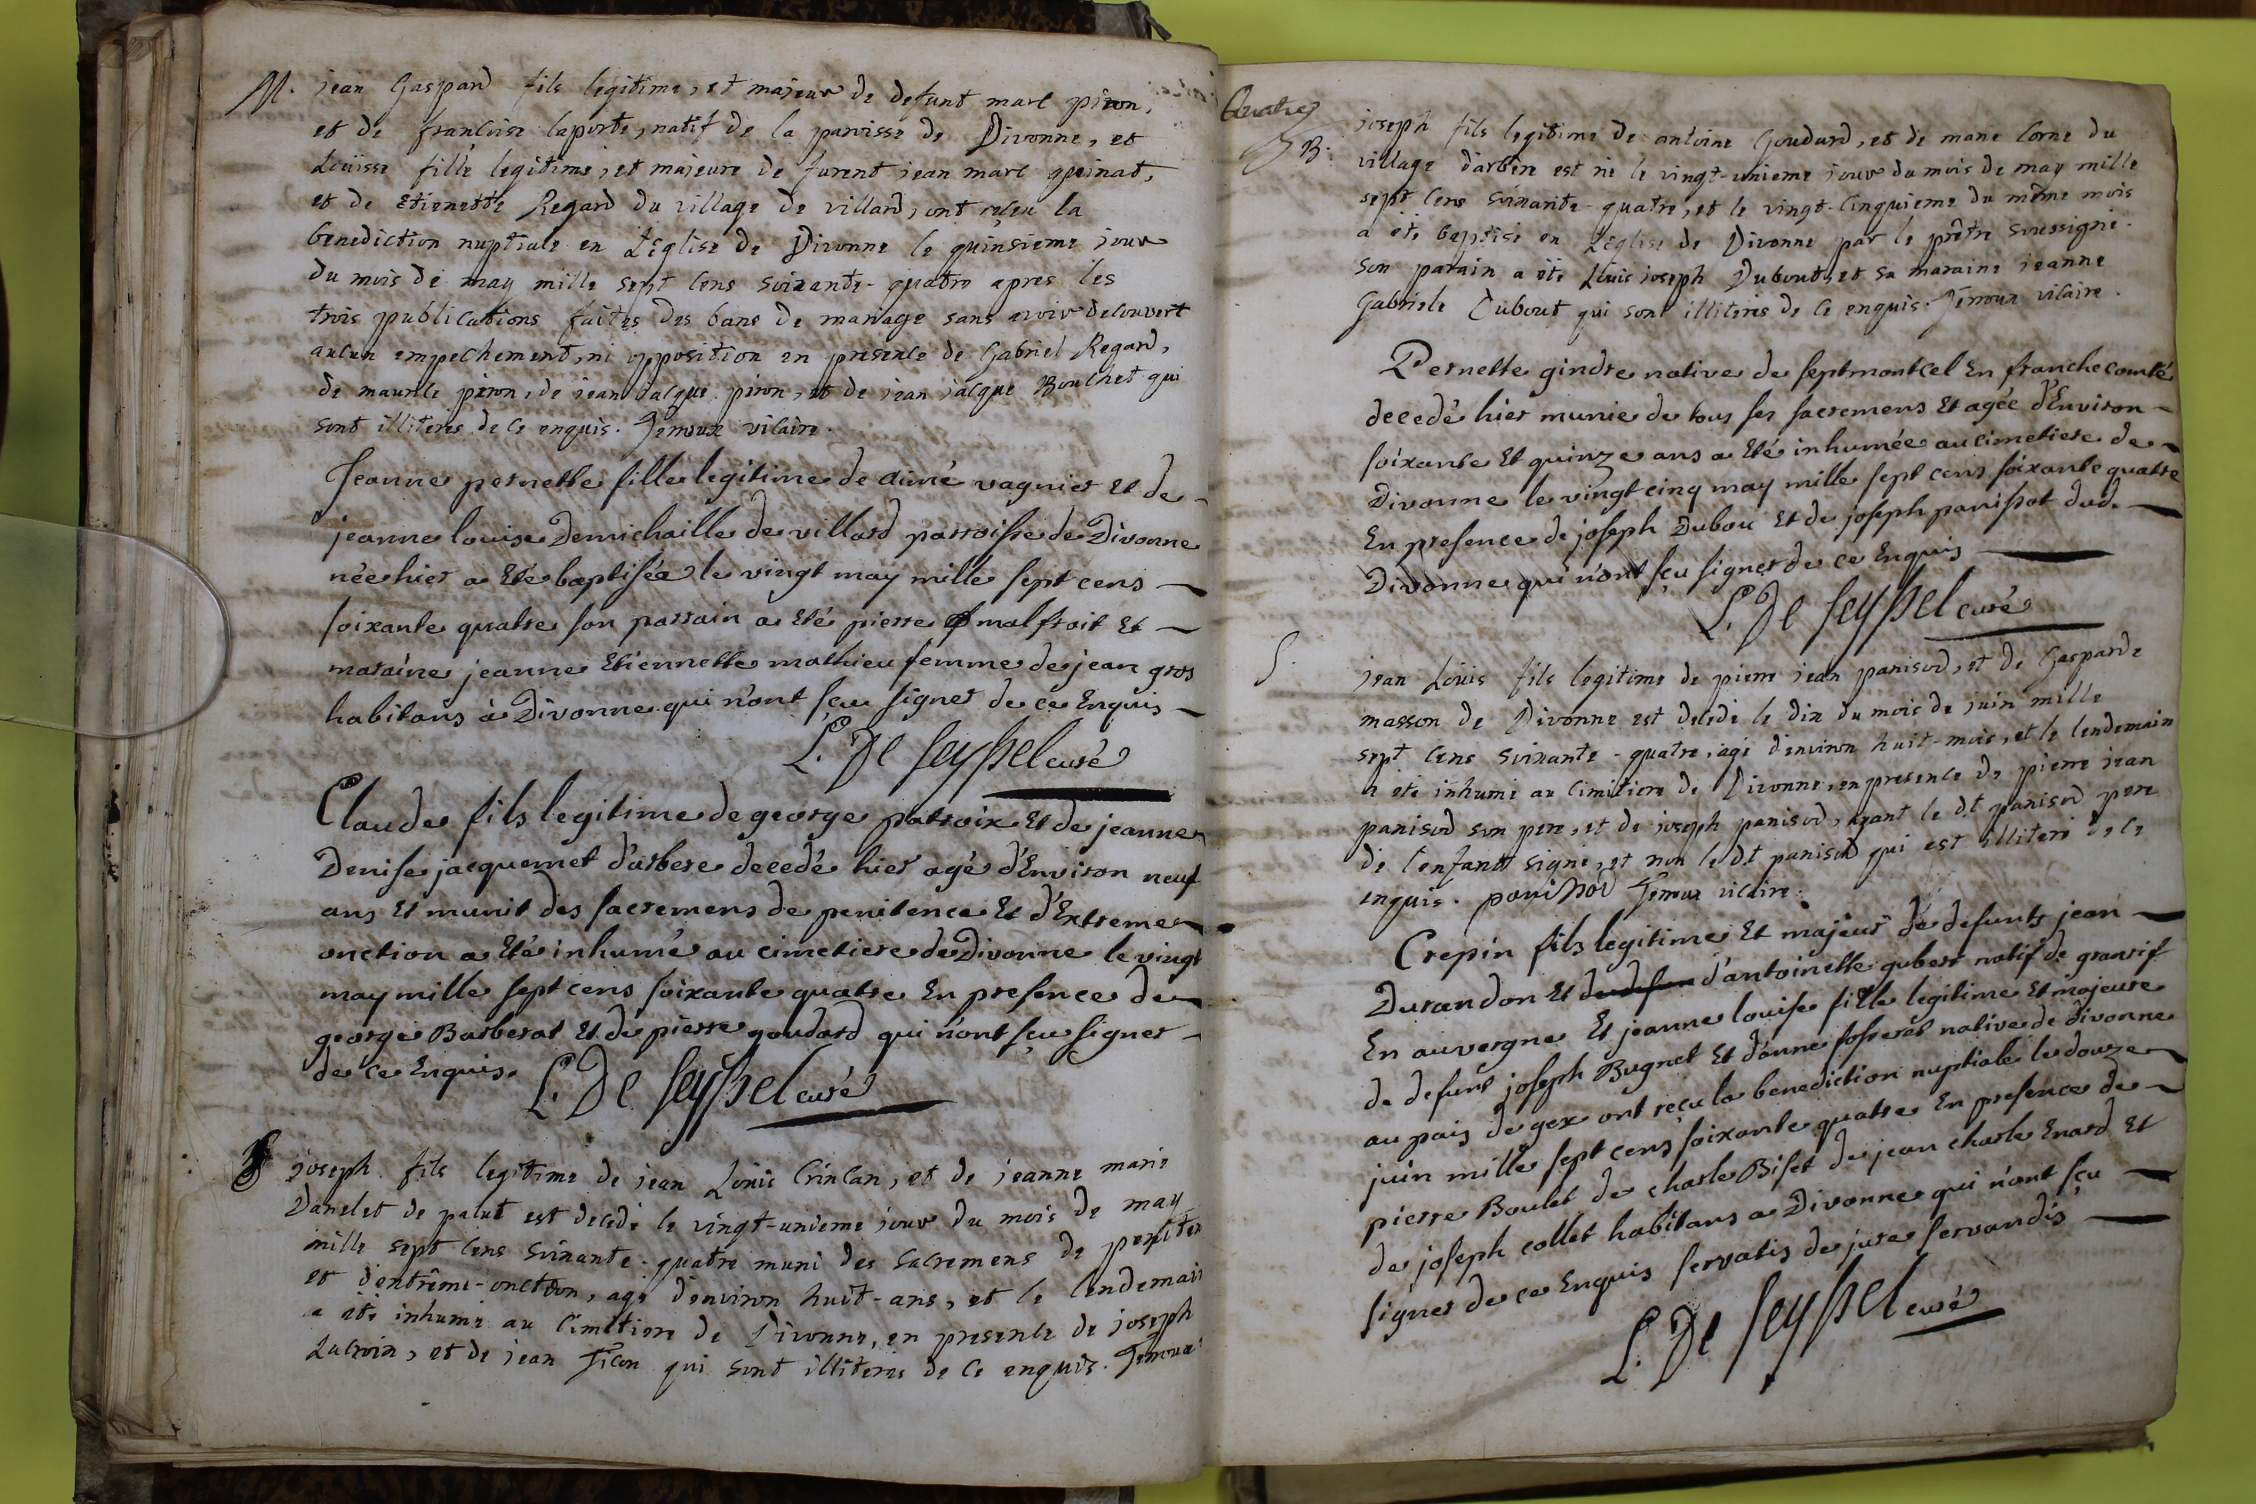 M. jean Gaspard fils legitime, et majeur de defunt marc piron,
et de francoise laporte, natif de la paroisse de Divonne, et
Loüisse fille legitime, et majeure de furent jean marc guinat,
et de Etienette Regard du village de villard, ont reçeu la
benediction nuptiale en L'eglise de Divonne le quinsieme jour
du mois de may mille sept cens soixante-quatre apres les
trois publications faites des bans de mariage sans avoir decouvert
aucun empechement, ni opposition en presence de Gabriel Regard,
de maurice piron, de jean jacque piron, et de jean jacque Bouchet qui
sont illiteres de ce enquis. Femoux vicaire.
Jeanne pernette fille legitime de aimé vagnier et de
jeanne louise Demichaille de villard parroisse de Divonne
née hier a Eté baptisée le vingt may mille sept cens
soixante quatre son parrain a eté pierre malfroit Et
maraine jeanne Etiennette mathieu femme de jean gros
habitans à Divonne qui n'ont sçeu signer de ce Enquis
L. De seyssel curé
Claude fils legitime de george patroix Et de jeanne
Denise jacquemet d'arbere decedé hier agé d'Environ neuf
ans Et munit des sacremens de penitence Et d'Extreme
onction a Eté inhumé au cimetiere de Divonne le vingt
may mille sept cens soixante quatre En presence de
george Barberat Et de pierre goudard qui n'ont sçu signer
de ce Enquis. L. De seyssel curé
S joseph fils legitime de jean Loüis Crincan, et de jeanne marie
Danelet de palut est decede le vingt-unieme jour du mois de may
mille sept cens soixante-quatre muni des sacremens de peniten
et d'extrême-onction, agé d'environ huit-ans, et le lendemain
a été inhumé au cimetiere de Divonne, en presence de joseph
Lacroix, et de jean Ficon qui sont illiteres de ce enquis. Femoux
Quatre
B. joseph fils legitime de antoine Goudard, et de marie Corne du
village d'arbere est né le vingt-unieme jour du mois de may mille
sept cens soixante-quatre, et le vingt-cinquieme du même mois
a été baptisé en L'eglise de Divonne par le prêtre soussigné.
son parain a été Louis joseph Dubout, et sa maraine jeanne
Gabriele Dubout qui sont illiteres de ce enquis. Femoux vicaire.
Pernette gindre native de septmontcel En franche comté
decedé hier munie de tous ses sacremens Et agée d'Environ
soixante Et quinze ans a Eté inhumée au cimetiere de
Divonne le vingt cinq may mille sept cens soixante quatre
En presence de joseph Dubou Et de joseph panissot dud.
Divonne qui n'ont sçu signer de ce Enquis
L. De seyssel curé
S. jean Loüis fils legitime de pierre jean panisod, et de Gasparde
masson de Divonne est decede le dix du mois de juin mille
sept cens soixante-quatre, agé d'environ huit-mois, et le lendemain
a été inhumé au cimitiere de Divonne, en presence de pierre jean
panisod son pere, et de joseph panisod, ayant le dt panisod pere
de l'enfant signé, et non le dt panisod qui est illiteré de ce
enquis. panissod Femoux vicaire.
Crepin fils legitime Et majeur de defunts jean
Durandon Et d'antoinette qubert natif de gransif
En auvergne Et jeanne louise fille legitime Et majeure
de defunt joseph Bugnet Et d'anne fosseret native de Divonne
au pais de gex ont reçu la benediction nuptiale le douze
juin mille sept cens soixante quatre En presence de
pierre Boulet de charle Biset de jean charle Enard Et
de joseph collet habitans a Divonne qui n'ont sçu
signer de ce Enquis servatis de jure servandis
L. De seyssel curé